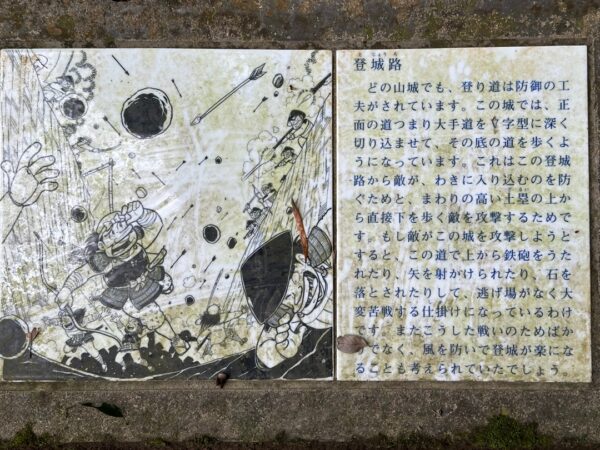 とじょうろ
登城路
どの山城でも、登り道は防御の工
夫がされています。この城では、正
面の道つまり大手道をV字型に深く
切り込ませて、その底の道を歩くよ
うになっています。これはこの登城
路から敵が、わきに入り込むのを防
ぐためと、まわりの高い土塁の上か
ら直接下を歩く敵を攻撃するためで
す。もし敵がこの城を攻撃しようと
すると、この道で上から鉄砲をうた
れたり、矢を射かけられたり、石を
落とされたりして、逃げ場がなく大
変苦戦する仕掛けになっているわけ
です。またこうした戦いのためばか
りでなく、風を防いで登城が楽にな
ることも考えられていたでしょう。